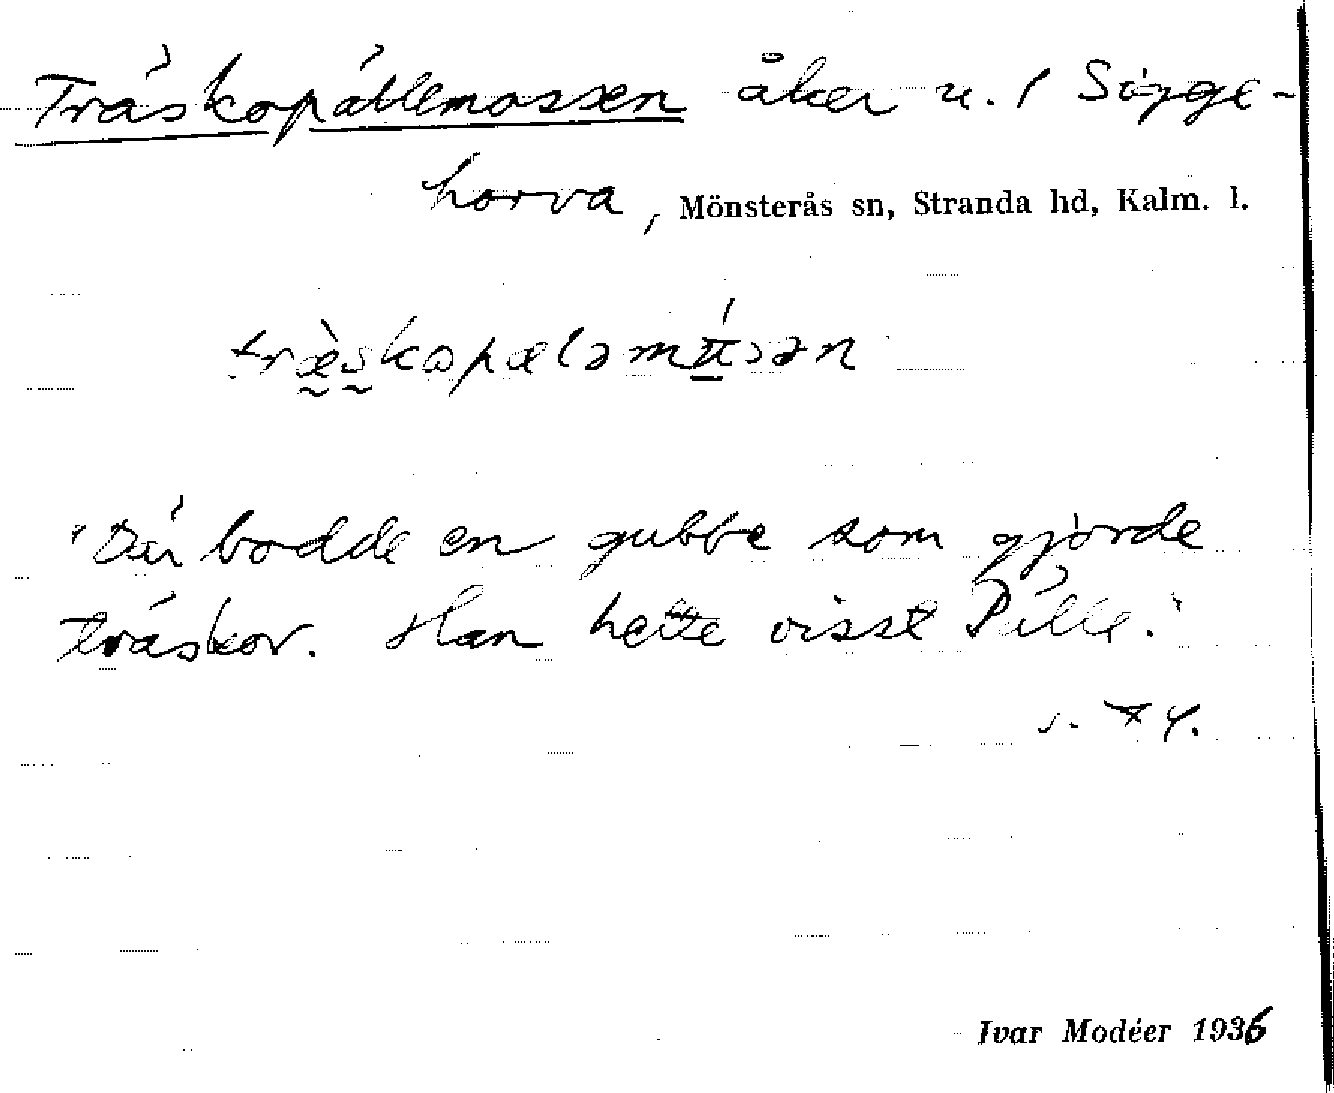 Träskopällemossen åker u. / Sigge-
horva, Mönsterås sn, Stranda hd, Kalm. l.
"Där bodde en gubbe som gjorde
träskor. Han hette visst Pälle."
Ivar Modéer 1936